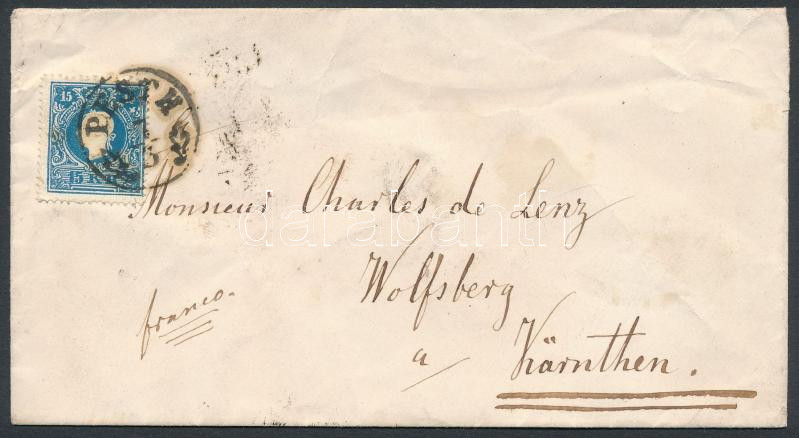 15
PESTH
15 Kr
Monsieur Charles de Lenz
Wolfsberg
franco.
a/
Kärnthen.
darabanth